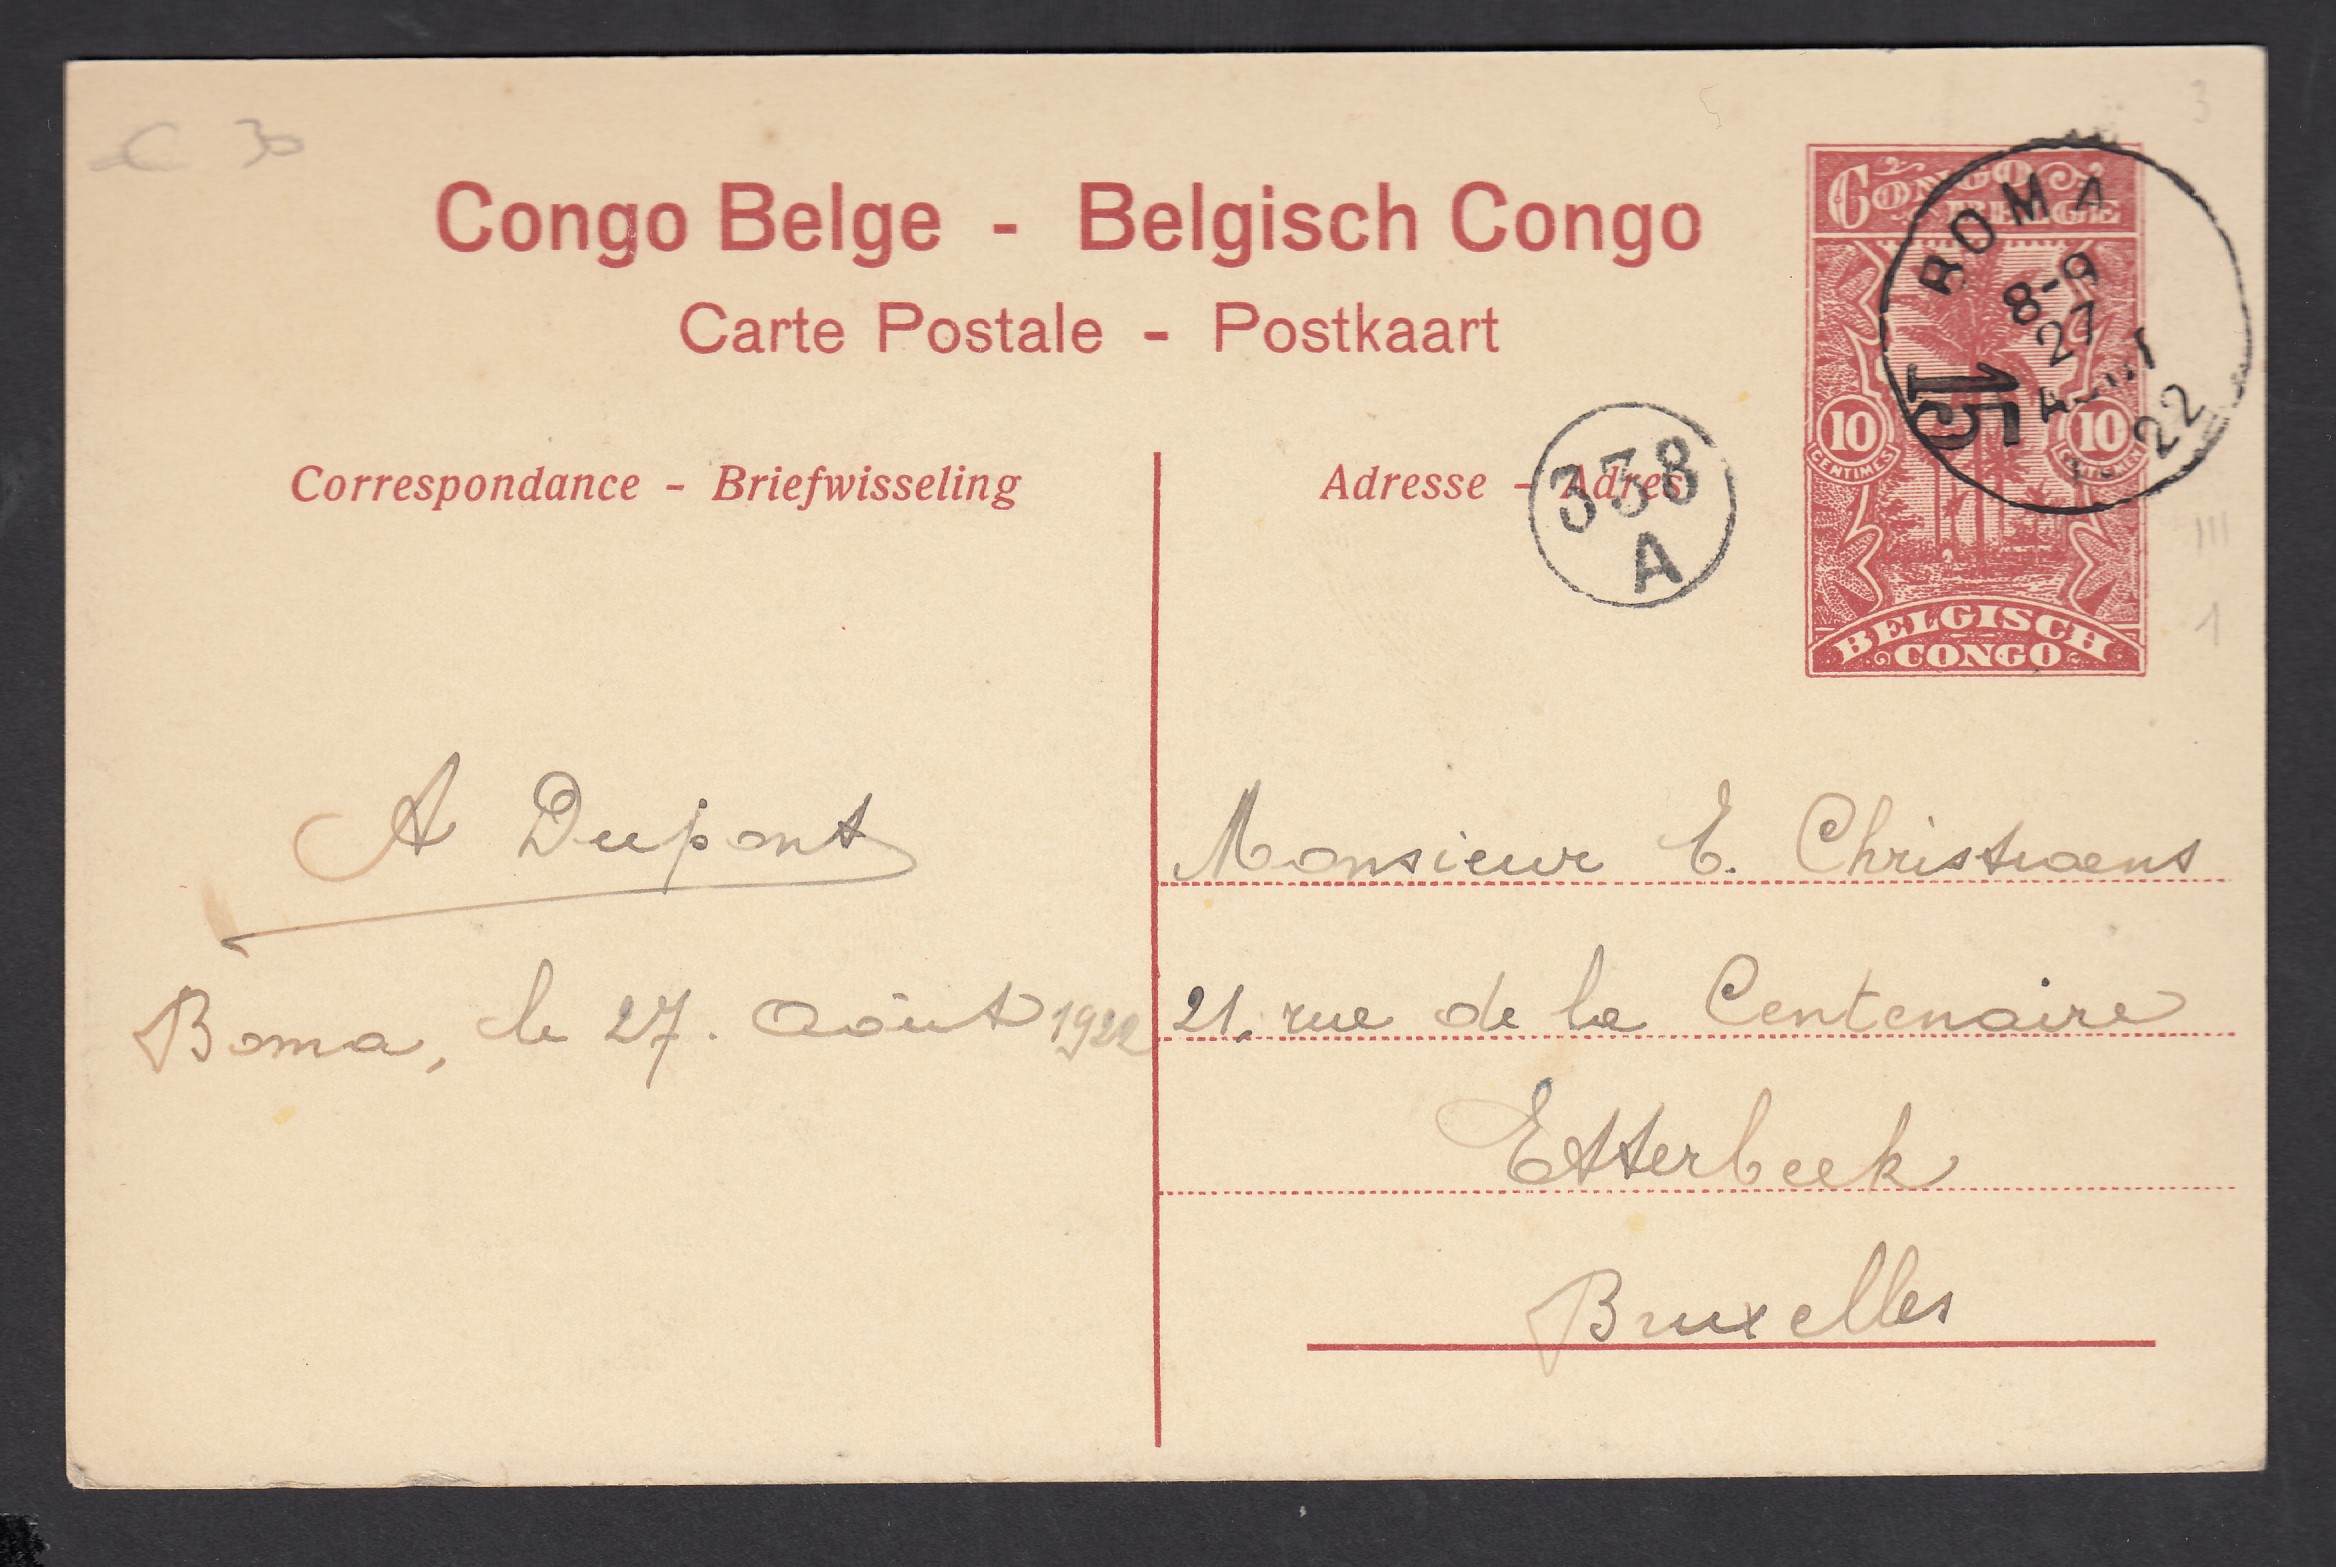 C 30
3
Congo Belge - Belgisch Congo
Carte Postale - Postkaart
CONGO BELGE
10 CENTIMES
10 CENTIMEN
BELGISCH CONGO
BOMA
8-9
27
AOUT
22
15
Correspondance - Briefwisseling
Adresse - Adres
338
A
III
1
A Dupont
Boma, le 27. Août 1922
Monsieur E. Christiaens
21, rue de la Centenaire
Etterbeek
Bruxelles